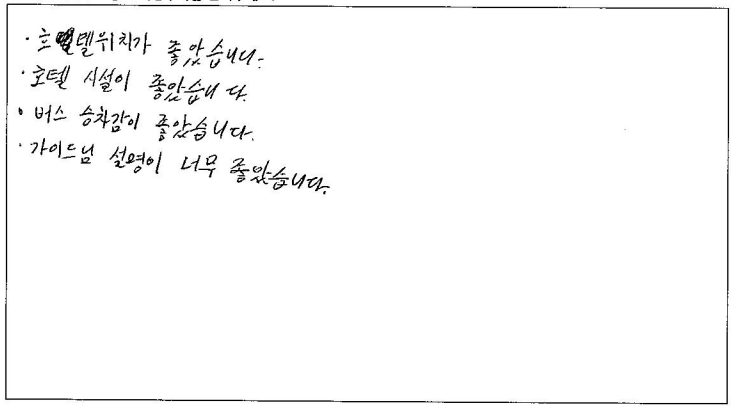 · 호텔위치가 좋았습니다.
· 호텔 시설이 좋았습니다.
· 버스 승차감이 좋았습니다.
· 가이드님 설명이 너무 좋았습니다.